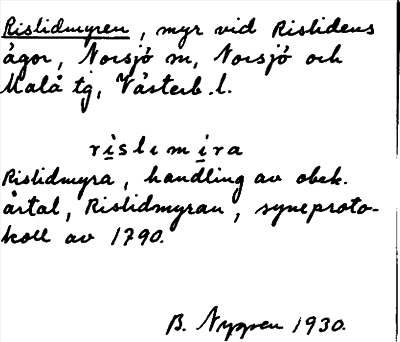 Rislidmyren, myr vid Rislidens
ägor, Norsjö sn, Norsjö och
Malå tg, Västerb. l.
rislımira
Rislidmyra, handling av obek.
årtal, Rislidmyran, syneproto-
koll av 1790.
B. Nygren 1930.